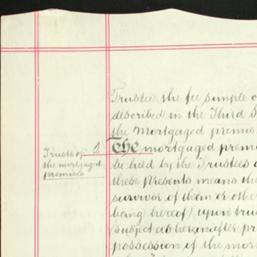 Trustees the fee simple o
described in the Third S
the Mortgaged premis
Trusts of the mortgaged premises
2 The mortgaged premi
be held by the Trustees o
these presents means the
survivor of them or othe
being hereof) upon tru
(subject as hereinafter pr
possession of the mor